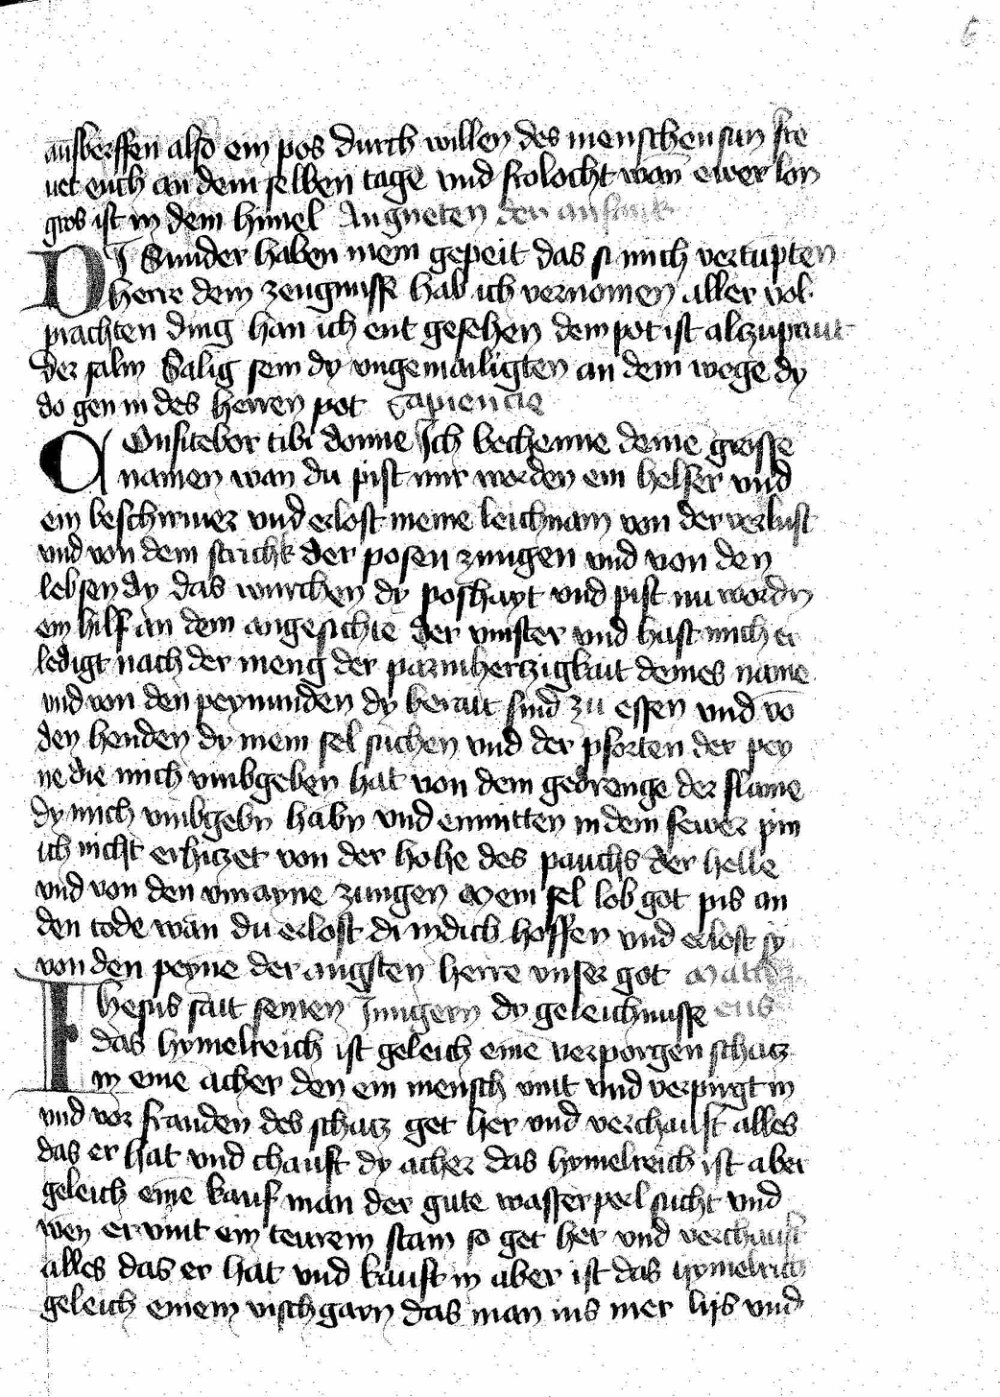 6
ausberffen also ein pos durch willen des menschen sun fre
uet euch an dem selben tage und frolocht wān ewer lon
gros ist in dem himel Augneten der
DI Sunder haben mein gepeit das si mich vertūpten
herre dein zeugnusse hab ich vernomen aller vol
prachten ding han ich ent gesehen dein pot ist alczuprait
der salm Sálig sein dy ungemailigten an dem wege dy
do gen in des herren pot Sapiencie
COnfitebor tibi domine Ich bechenne deinē grosse
namen wan du pist mir worden ein helfer und
ein beschirmer und erlost meine leichnam von der verlust
und von dem strichk der posen zungen und von den
lebsen dy das wurchen dy poshayt und pist mir wordn
ein hilf an dem angesichte der vinster und hast mich er
ledigt nach der meng der parmherczigkait deines name
und von den peyninden dy berait sind zu essen und vō
den henden dy mein sel suchen und der pforten der pey
ne die mich umbgeben hat von dem gedrenge der flame
dy mich umbgebn habn und enmitten in dem fewer pin
ich nicht erhiczet von der hohe des pauchs der helle
und von den unrayne zungen Mein sel lob got pis an
den tode wan du erlost di in dich hoffen und erlost sy
von den peyne der angsten herre unser got Mathe
IHesus sait seinen Jungern dy geleichnusse eus
das hymelreich ist geleich eine verporgen schacz
in eine acher den ein mensch vint und verpirgt in
und vor frauden des schacz get her und verchauft alles
das er hat und chauft dy acher das hymelreich ist aber
geleich eine kaufman der gute wasserperl sucht und
wen er vint ein teurem stain so get her und verchauft
alles das er hat und kauft in aber ist das hymelreich
geleich einem vischgarn das man ins mer lijs und